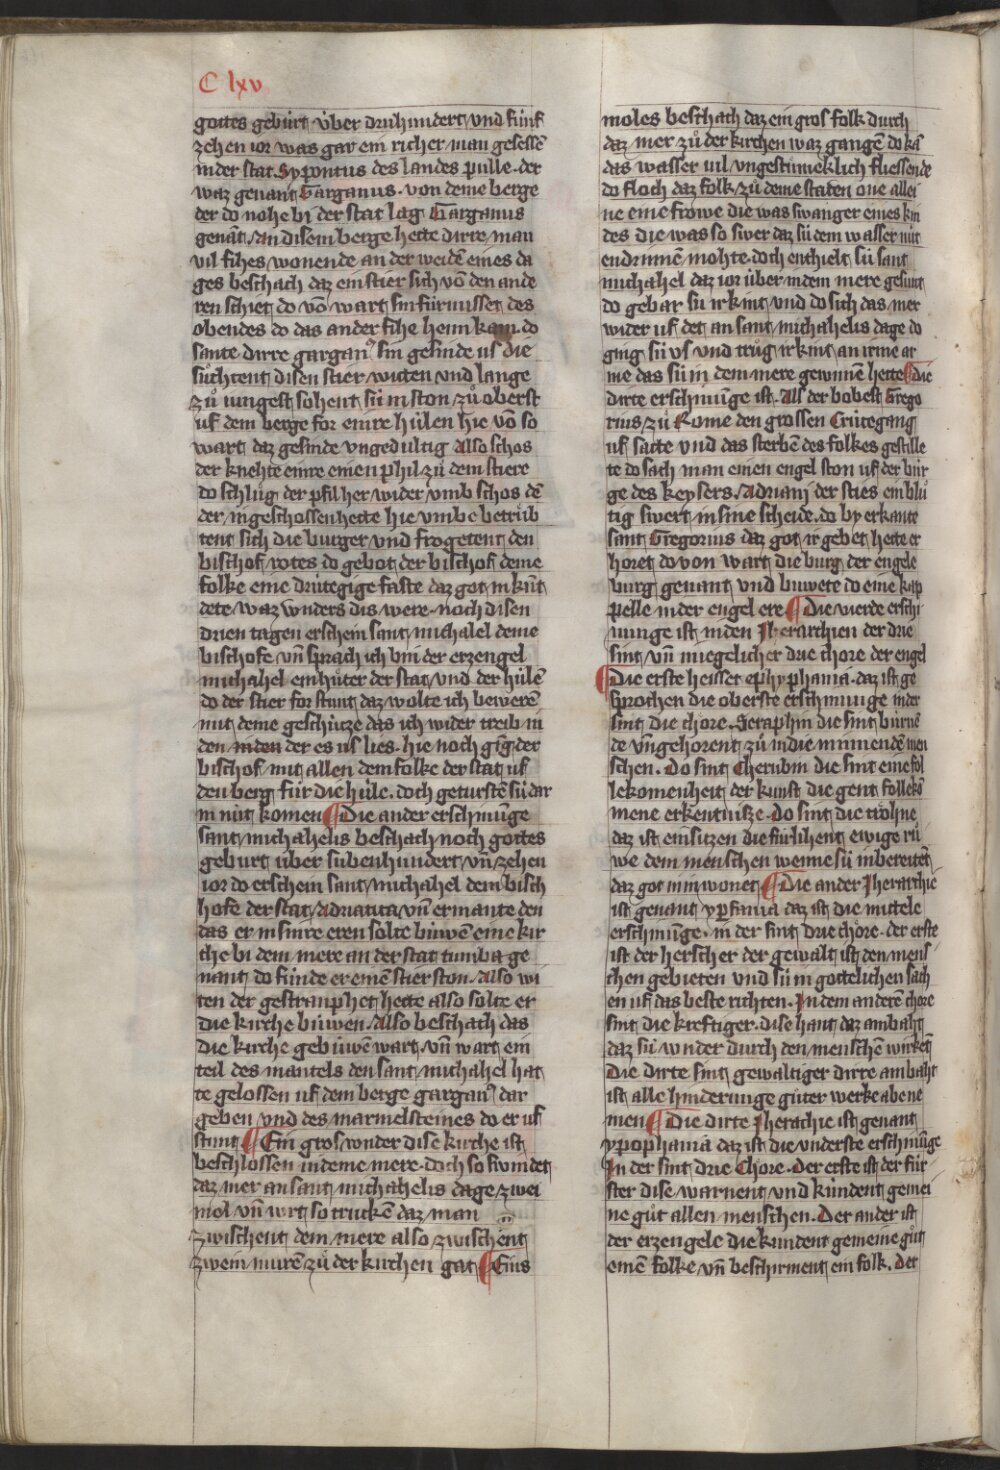 C lxv
gottes gebúrt úber drúhundert vnd fúnf
zehen ior was gar ein richer man gesessē
in der stat Sypontus des landes pulle. der
waz genant Garganus. von deme berge
der do nohe bi der stat lag Garganus
genāt. An disem berge hette dirre man
vil fihes wonende an der weidē eines da
ges beschach daz ein stier sich vō den ande
ren schiet do vō wart sin fúrmisset des
obendes do das ander fihe heim kam. do
sante dirre garganꝰ sin gesinde us die
sůchtent disen stier witen vnd lange
zů iungest sohent sú in ston zů oberst
uf dem berge for einre húlen hie vō so
wart daz gesinde vngedultig also schos
der knehte einre einen phil zů dem stiere
do schlůg der pfil her wider vmb schos dē
der in geschossen hette hie vmbe betrůb
tent sich die burger vnd frogetent den
bischof rotes do gebot der bischof deme
folke eine drútegige faste daz got in kúnt
dete waz wnders dis were. noch disen
drien tagen erschein sant michahel deme
bischofe vn̄ sprach ich bin der erzengel
michahel ein húter der stat vnd der húlē
do der stier for stunt daz wolte ich bewerē
mit deme geschúzze das ich wider treib in
den in den der es us lies. hie noch gīg der
bischof mit allen dem folke der stat uf
den berg fúr die húle. doch geturstē sú dar
in nút komen ¶ Die ander erschinūge
sant michahelis beschach noch gottes
geburt úber súbenhundert vn̄ zehen
ior do erschein sant michahel dem bisch
hofe der stat Adriatita vn̄ ermante den
das er in sinre eren solte búwē eine kir
che bi dem mere an der stat tumba ge
nant do fúnde er einē stier ston. Also wi
ten der gestramphet hette also solte er
die kirche búwen. Also beschach das
die kirche gebúwē wart. vn̄ wart ein
teil des mantels den sant michahel hat
te gelossen uf dem berge garganꝰ dar
geben vnd des marmelsteines do er uf
stunt ¶ Ein gros wnder dise kirche ist
beschlossen in deme mere. doch so swindet
daz mer an sant michahelis dage zwei
mol vn̄ wirt so truckē daz man
zwischent dem mere also zwischent
zwein murē zů der kirchen gat ¶ Eins
moles beschach daz ein gros folk durch
daz mer zů der kirchen waz gangē do kā
das wasser vil vngestimeklich fliessende
do floch daz folk zů deme staden one allei
ne eine frowe die was swanger eines kin
des die was so swer daz sú dem wasser nút
endrinnē mohte. doch enthielt sú sant
michahel daz ior úber in dem mere gesunt
do gebar sú ir kint vnd do sich das mer
wider uf det an sant michahelis dage do
ging sú vs vnd trůg ir kint an irme ar
me das sú in dem mere gewinnē hette ¶ die
dirte erschinūge ist. Als der bobest Grego
rius zů Rome den grossen Crúcegang
uf satte vnd das sterbē des folkes gestille
te do sach man einen engel ston uf der búr
ge des keysers. Adriani der sties ein blů
tig swert in sine scheide. do by erkante
sant Gregorius daz got ir gebet hette er
horet do von wart die burg der engele
burg genant vnd buwete do eine kap
pelle in der engel ere ¶ Die vierde erschi
nunge ist in den Iherarchien der drie
sint vn̄ in iegelicher drie chore der engel
¶ Die erste heisset ephyphania. daz ist ge
sprochen die oberste erschinunge in der
sint die chore. Seraphin die sint búrnē
de vn̄ gehorent zů in die minnendē men
schen. Do sint Cherubin die sint eine fol
lekomenheit der kunst die gent follekō
mene erkentnisze. do sint die tröhne
daz ist ein sitzen die fúrlihent ewige rů
we dem menschen wenne sú in bereitēt
daz got in in wonet ¶ Die ander Iherarchie
ist genant yꝑfania daz ist die mittele
erschinūge. in der sint drie chöre. der erste
ist der herscher der gewalt ist den mens
chen gebieten vnd sú in gottelichen sach
en uf das beste richten. In dem anderē chore
sint die kreftiger. dise hant daz ambaht
daz sú wnder durch den menschē wirkēt
Die dirte sint gewaltiger dirre ambaht
ist alle hinderunge gůter werke abene
men ¶ Die dirte Iherachie ist genant
ypophania daz ist die vnderste erschinūge
In der sint drie Chore. Der erste ist der fúr
ster dise warnent vnd kúndent gemei
ne gůt allen menschen. Der ander ist
der erzengele die kundent gemeine gůt
einē folke vn̄ beschirment ein folk. Der